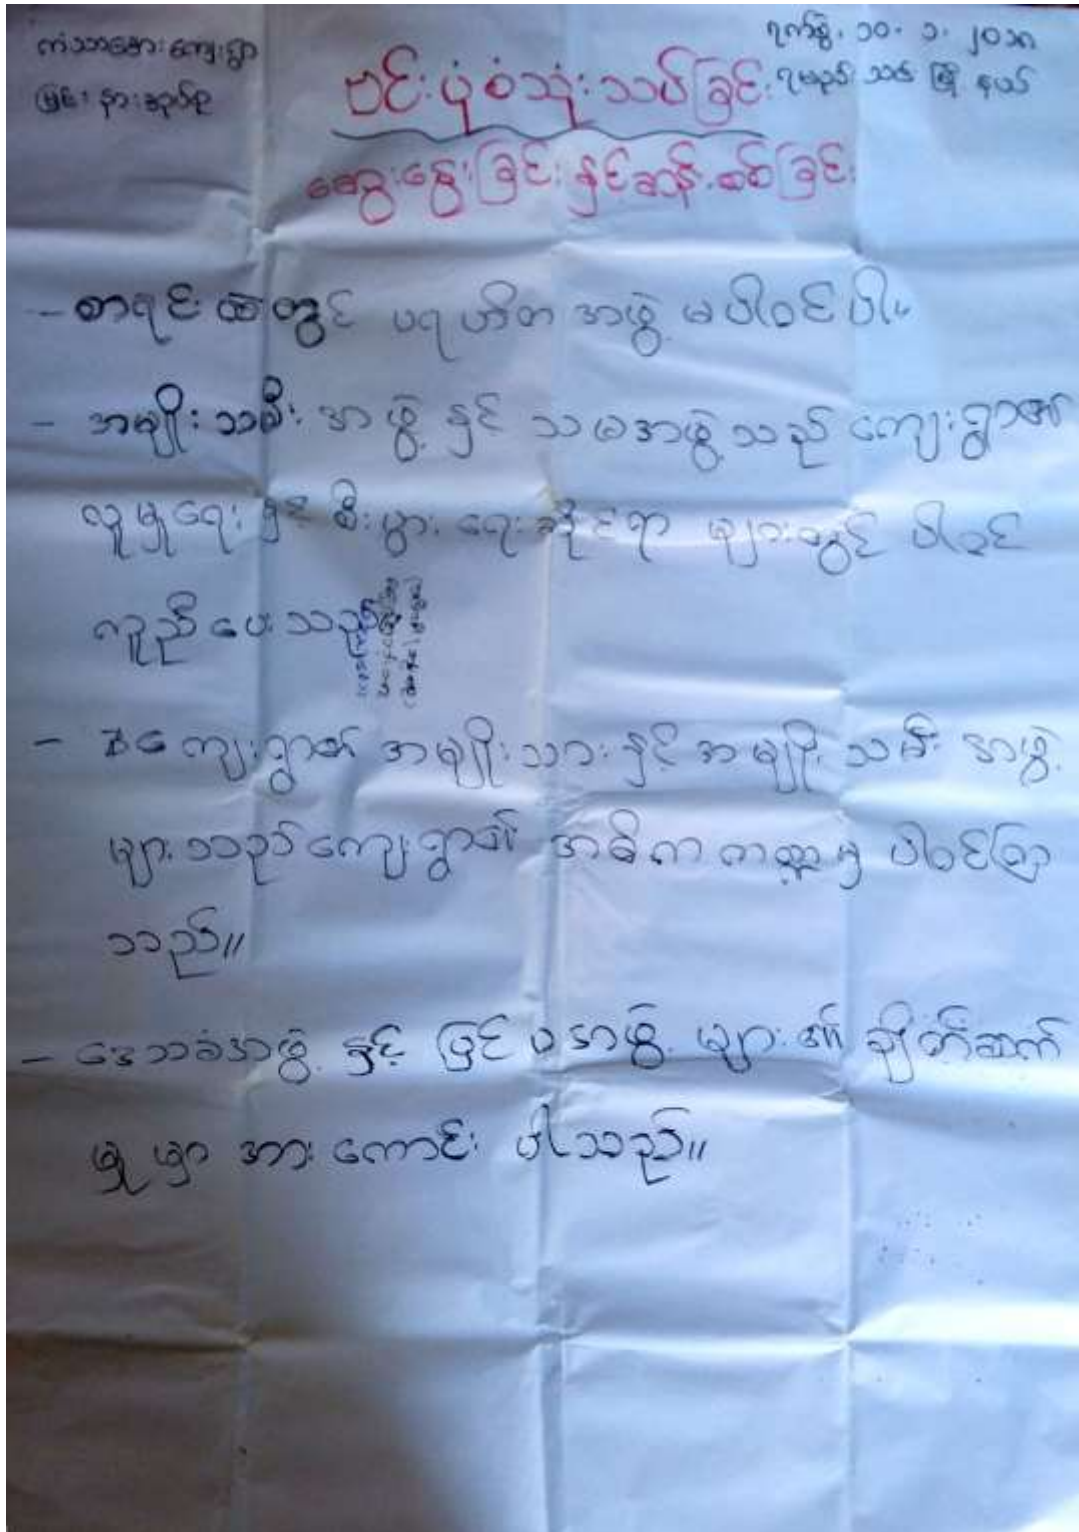 ကံသာအေးကျေးရွာ
ရက်စွဲ၊ ၁၀. ၁. ၂၀၁၈
မြင်းနားအုပ်စု
ရမည်းသင်းမြို့နယ်
ဗင်းပုံစံသုံးသပ်ခြင်း
ဆွေးနွေးခြင်းနှင့်ဆန်းစစ်ခြင်း
- စာရင်းထဲတွင် ပရဟိတ အဖွဲ့ မပါဝင်ပါ။
- အမျိုးသမီး အဖွဲ့ နှင့် သမအဖွဲ့သည် ကျေးရွာ၏
လူမှုရေးနှင့် စီးပွားရေးဆိုင်ရာ များတွင် ပါဝင်
ကူညီပေးသည်
- ကျေးရွာ၏ အမျိုးသား နှင့် အမျိုးသမီး အဖွဲ့
များသည် ကျေးရွာ၏ အဓိက ကဏ္ဍမှ ပါဝင်ကြ
သည်။
- ဒေသခံအဖွဲ့ နှင့် ပြင်ပအဖွဲ့ များ၏ ချိတ်ဆက်
မှုမှာ အားကောင်းပါသည်။